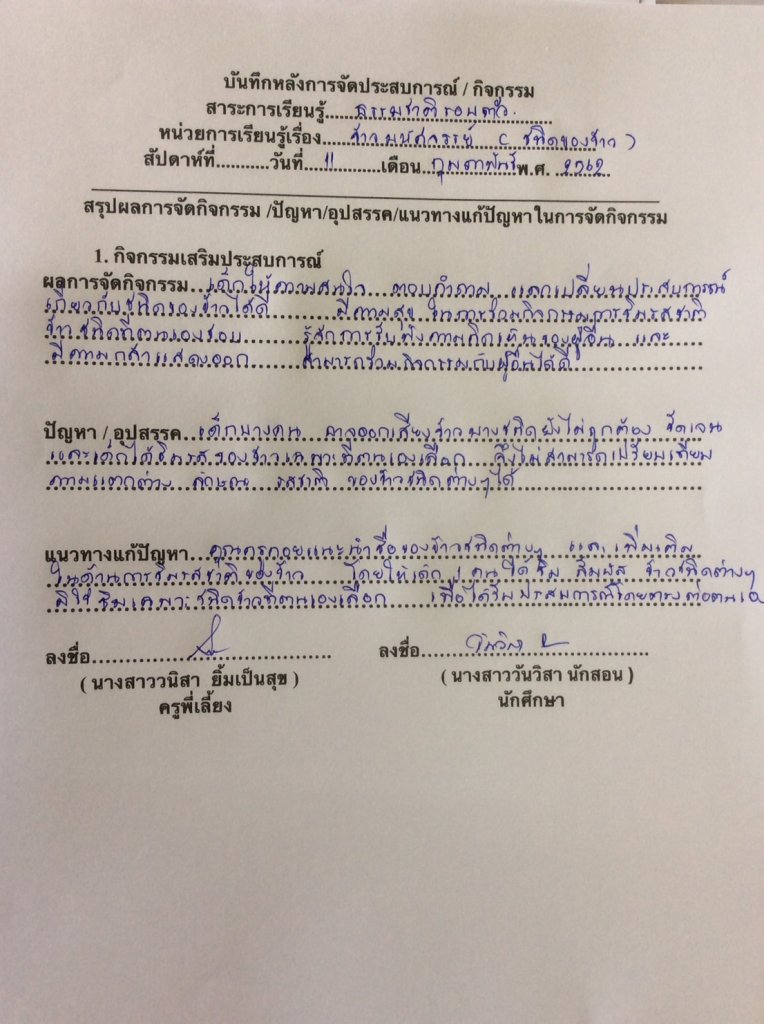 บันทึกหลังการจัดประสบการณ์ / กิจกรรม
สาระการเรียนรู้......ธรรมชาติรอบตัว
หน่วยการเรียนรู้เรื่อง......ข้าวมหัศจรรย์ (ชนิดของข้าว)
สัปดาห์ที่............วันที่....11........เดือน..กุมภาพันธ์..พ.ศ. ..2562..
สรุปผลการจัดกิจกรรม /ปัญหา/อุปสรรค/แนวทางแก้ปัญหาในการจัดกิจกรรม
1. กิจกรรมเสริมประสบการณ์
ผลการจัดกิจกรรม...เด็กให้ความสนใจ ตอบคำถาม แลกเปลี่ยนประสบการณ์
เกี่ยวกับชนิดของข้าวได้ดี มีความสุข ในการร่วมกิจกรรมการชิมรสชาติ
ข้าวชนิดที่ตนเองชอบ รู้จักการรับฟังความคิดเห็นของผู้อื่น และ
มีความกล้าแสดงออก สามารถร่วมกิจกรรมกับผู้อื่นได้ดี
ปัญหา / อุปสรรค...เด็กบางคน อาจออกเสียงข้าวบางชนิดยังไม่ถูกต้อง ชัดเจน
และเด็กได้ชิมรสของข้าวเฉพาะที่ตนเองเลือก จึงไม่สามารถเปรียบเทียบ
ความแตกต่าง ลักษณะ รสชาติ ของข้าวชนิดต่างๆได้
แนวทางแก้ปัญหา...คุณครูคอยแนะนำชื่อของข้าวชนิดต่างๆ และ เพิ่มเติม
ในด้านการชิมรสชาติของข้าว โดยให้เด็กๆ ทุกคนได้ชิม สัมผัส ข้าวชนิดต่างๆ
มิใช่ชิมเฉพาะชนิดข้าวที่ตนเองเลือก เพื่อได้รับประสบการณ์โดยตรงต่อตนเอง
ลงชื่อ.................................... ลงชื่อ...วันวิสา...
( นางสาววนิสา ยิ้มเป็นสุข ) ( นางสาววันวิสา นักสอน )
ครูพี่เลี้ยง นักศึกษา